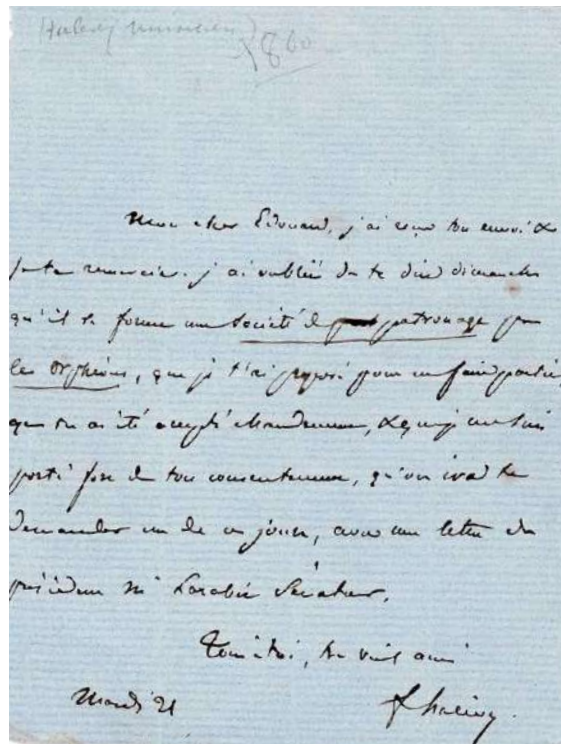 Halévy musicien
1860
Mon cher Edouard, j'ai reçu ton envoi &
je t'en remercie. j'ai oublié de te dire dimanche
qu'il se forme une Société de patronage pour
les Orphéons, que je t'ai proposé pour en faire partie,
que tu as été accepté chaudement, & que je me suis
porté fort de ton consentement, qu'on ira te
demander un de ces jours, avec une lettre du
président Mr Larabit Sénateur.
Tout à toi, ton vieil ami
F. Halévy.
Mardi 21